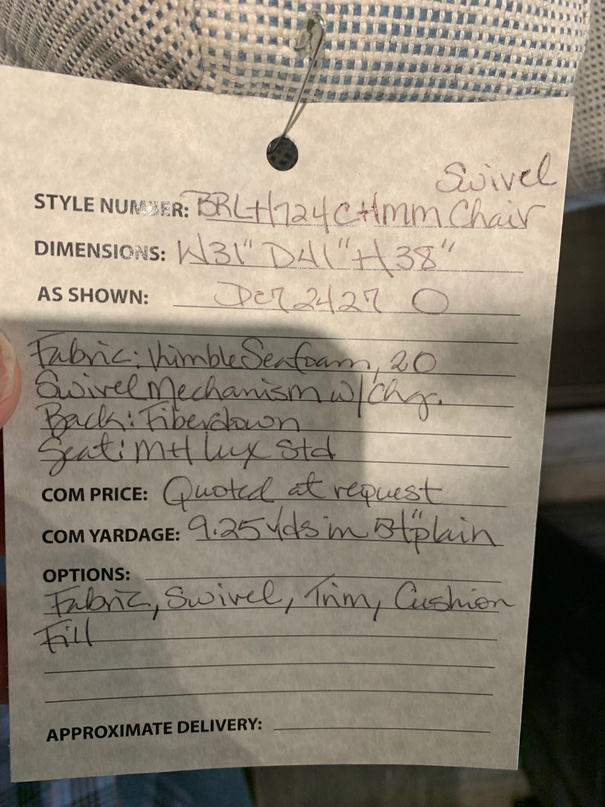 Swivel
STYLE NUMBER: BRLH724CHmm Chair
DIMENSIONS: W31" D41" H38"
AS SHOWN: 2427 O
Fabric: Seafoam, 20
Swivel Mechanism w/Chg.
Back: Fiberdown
Seat: MH Lux Std
COM PRICE: Quoted at request
COM YARDAGE: 9.25 yds in 54" plain
OPTIONS:
Fabric, Swivel, Trim, Cushion
Fill
APPROXIMATE DELIVERY: